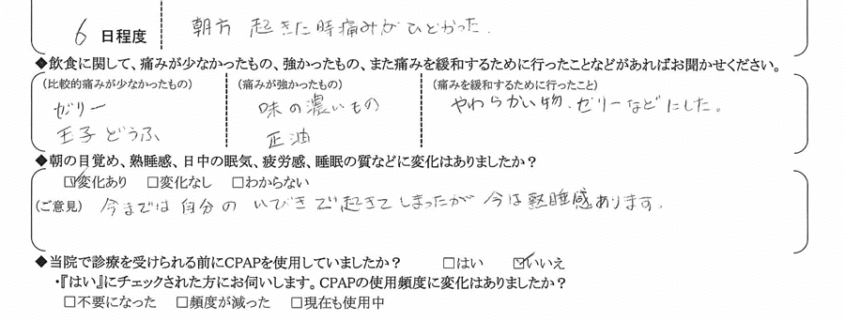 6 日程度 朝方 起きた時痛みがひどかった.
◆飲食に関して、痛みが少なかったもの、強かったもの、また痛みを緩和するために行ったことなどがあればお聞かせください。
(比較的痛みが少なかったもの) (痛みが強かったもの) (痛みを緩和するために行ったこと)
ゼリー 味の濃いもの やわらかい物、ゼリーなどにした。
玉子どうふ 正油
◆朝の目覚め、熟睡感、日中の眠気、疲労感、睡眠の質などに変化はありましたか?
☑変化あり □変化なし □わからない
(ご意見) 今までは自分のいびきで起きてしまったが 今は熟睡感あります.
◆当院で診療を受けられる前にCPAPを使用していましたか? □はい ☑いいえ
・『はい』にチェックされた方にお伺いします。CPAPの使用頻度に変化はありましたか?
□不要になった □頻度が減った □現在も使用中